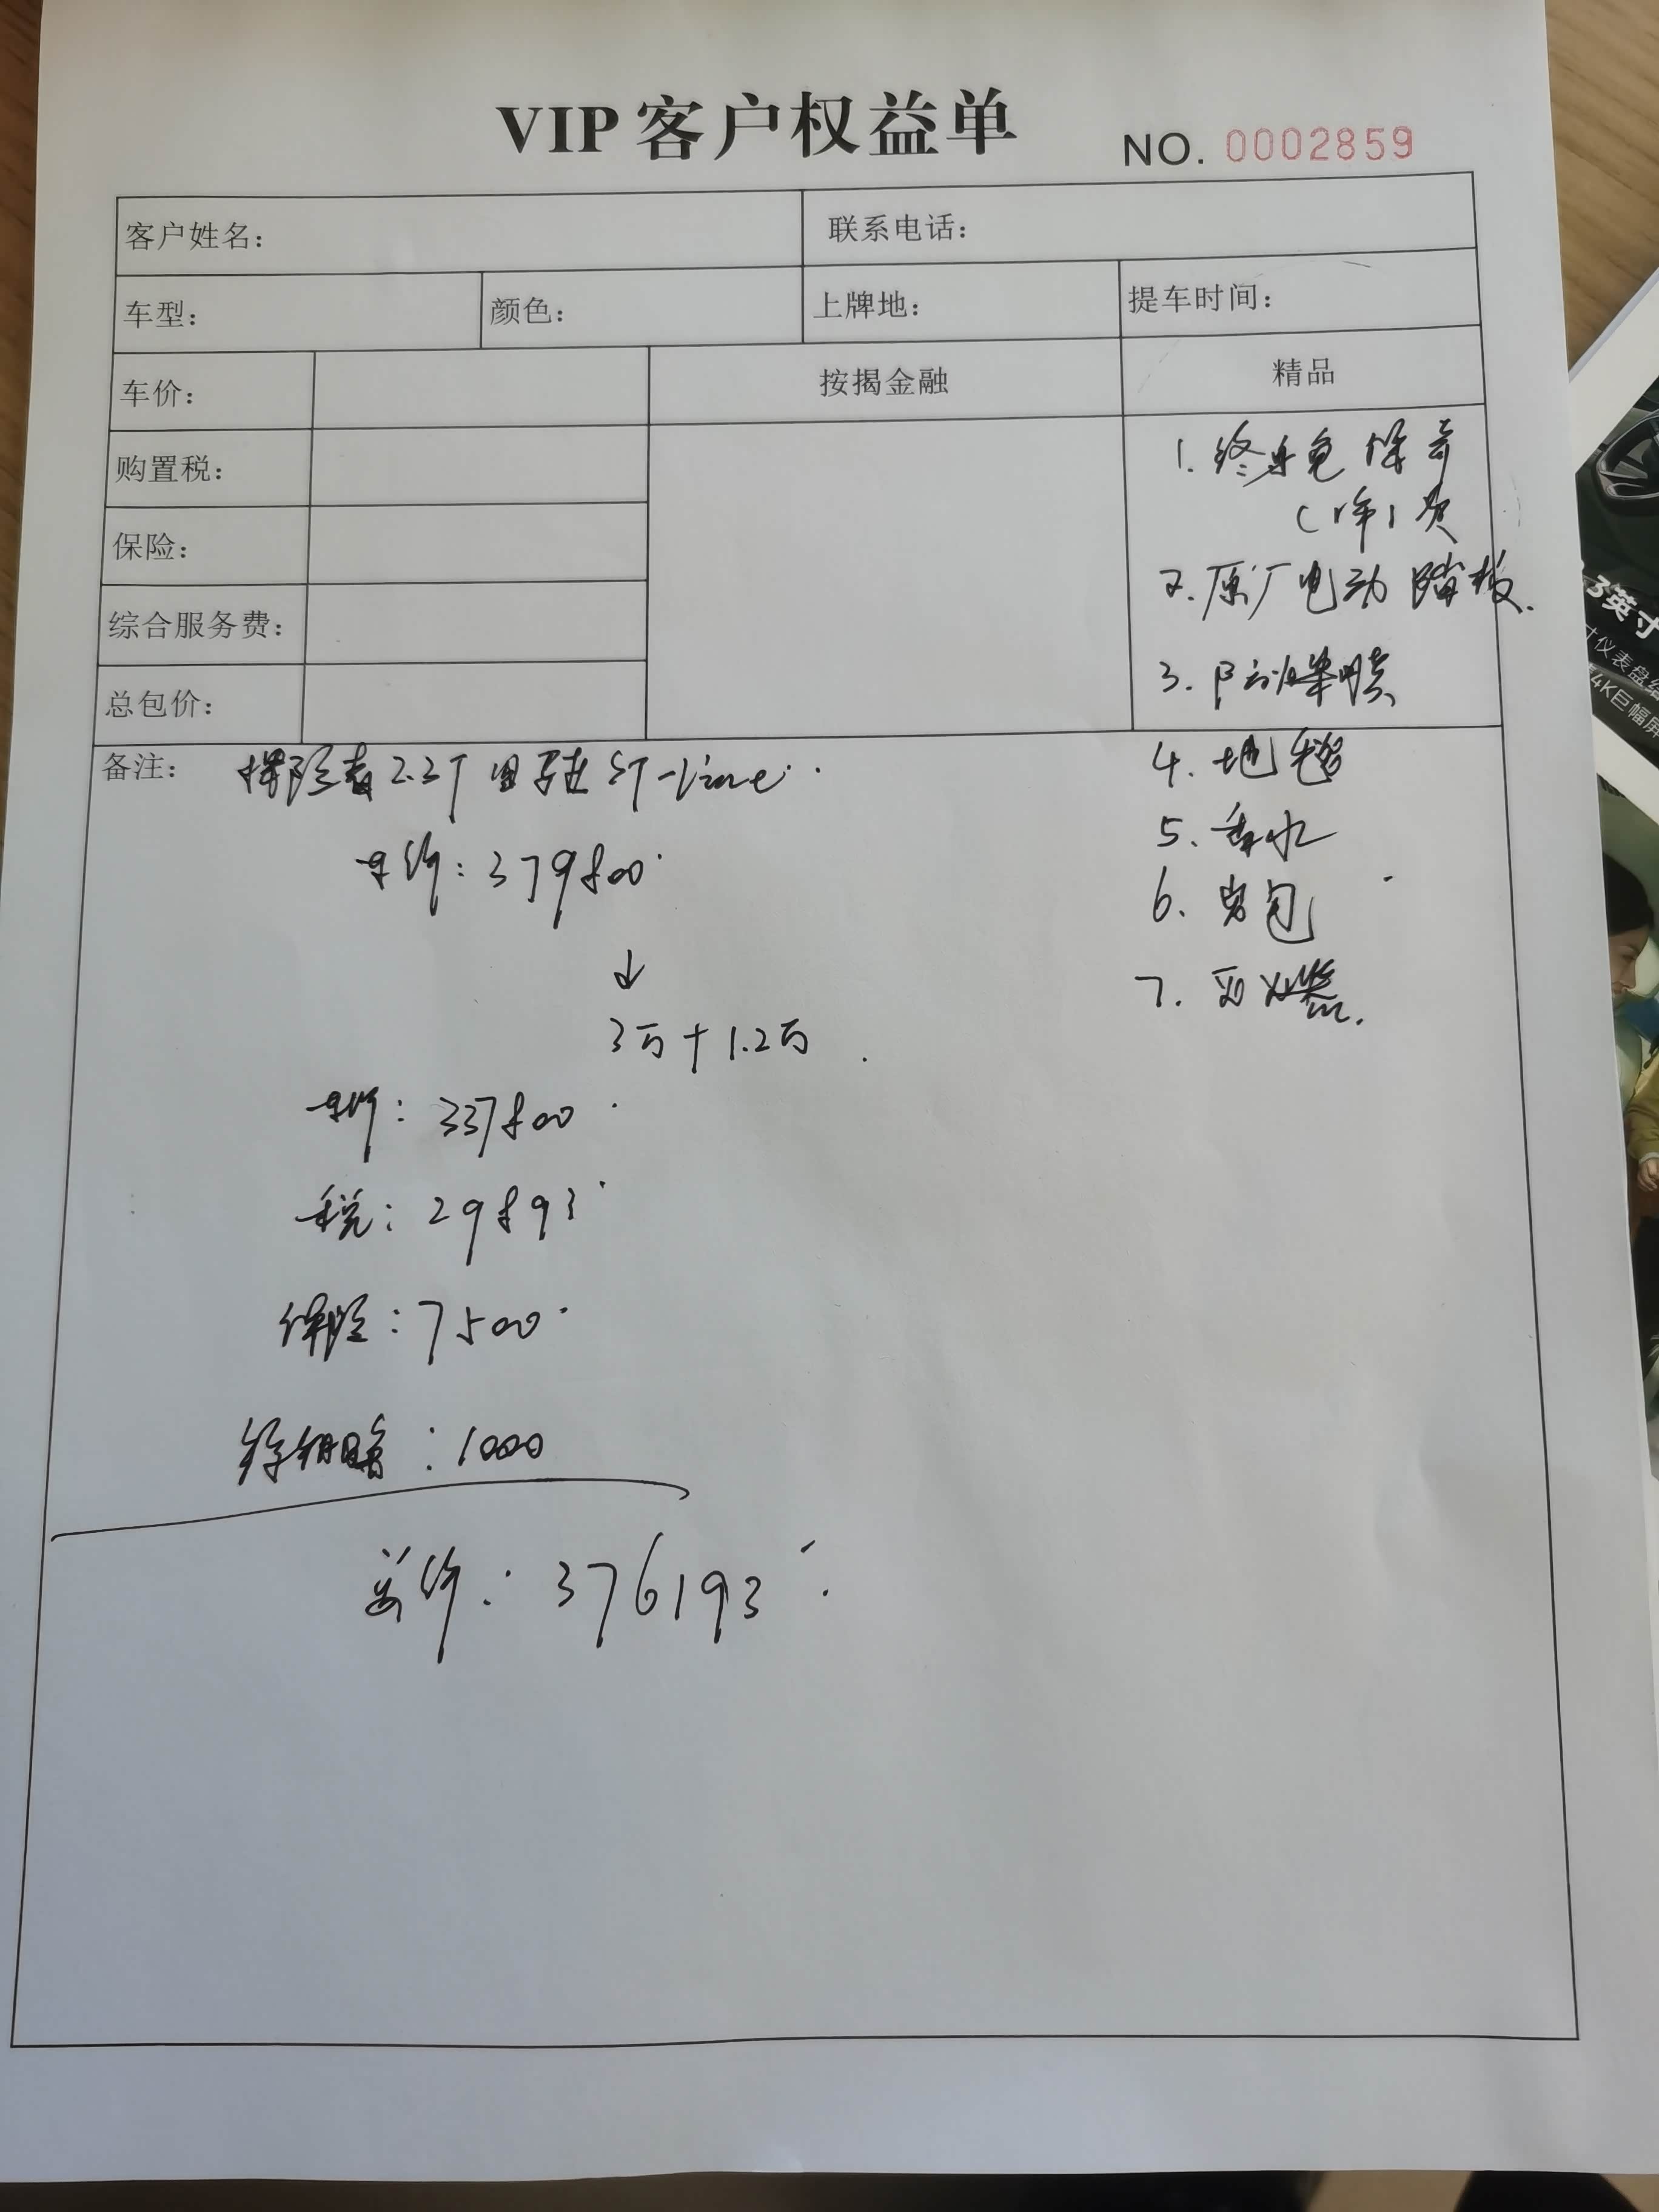 VIP 客户权益单
NO. 0002859
客户姓名：
联系电话：
车型：
颜色：
上牌地：
提车时间：
车价：
按揭金融
精品
购置税：
保险：
综合服务费：
总包价：
1. 终身免保养
2. 原厂电动踏板.
3. 防爆膜
4. 地毯
5. 香水
6. 安包
7. 灭火器.
备注：
探险者2.3T 四驱 ST-line
车价：379800
↓
3万+1.2万
车价：337800
税：29893
保险：7500
：1000
总价：376193
3英寸
寸仪表盘
4K巨幅屏